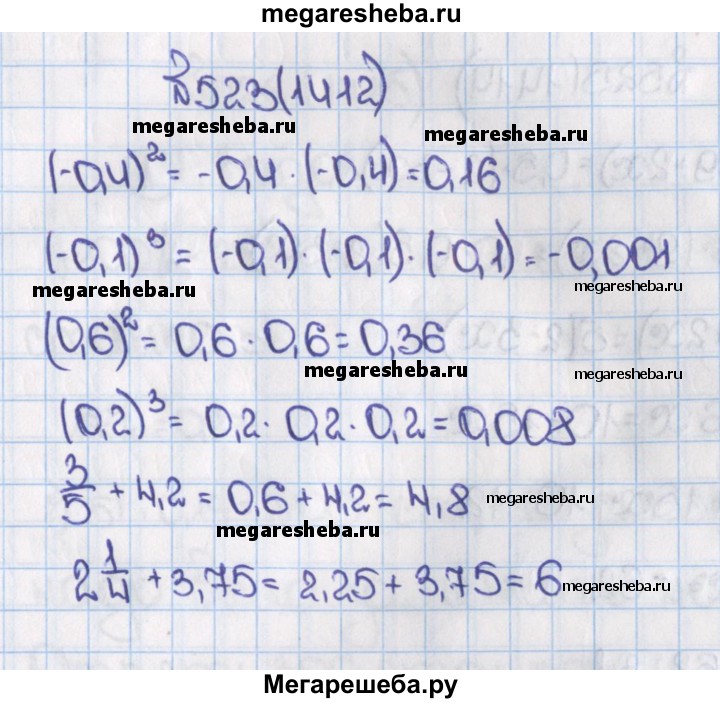 megaresheba.ru
№523(1412)
megaresheba.ru
megaresheba.ru
(-0,4)² = -0,4 · (-0,4) = 0,16
megaresheba.ru
(-0,1)³ = (-0,1) · (-0,1) · (-0,1) = -0,001
megaresheba.ru
megaresheba.ru
(0,6)² = 0,6 · 0,6 = 0,36
megaresheba.ru
megaresheba.ru
(0,2)³ = 0,2 · 0,2 · 0,2 = 0,008
3/5 + 4,2 = 0,6 + 4,2 = 4,8
megaresheba.ru
megaresheba.ru
2 1/4 + 3,75 = 2,25 + 3,75 = 6
megaresheba.ru
Мегарешеба.ру